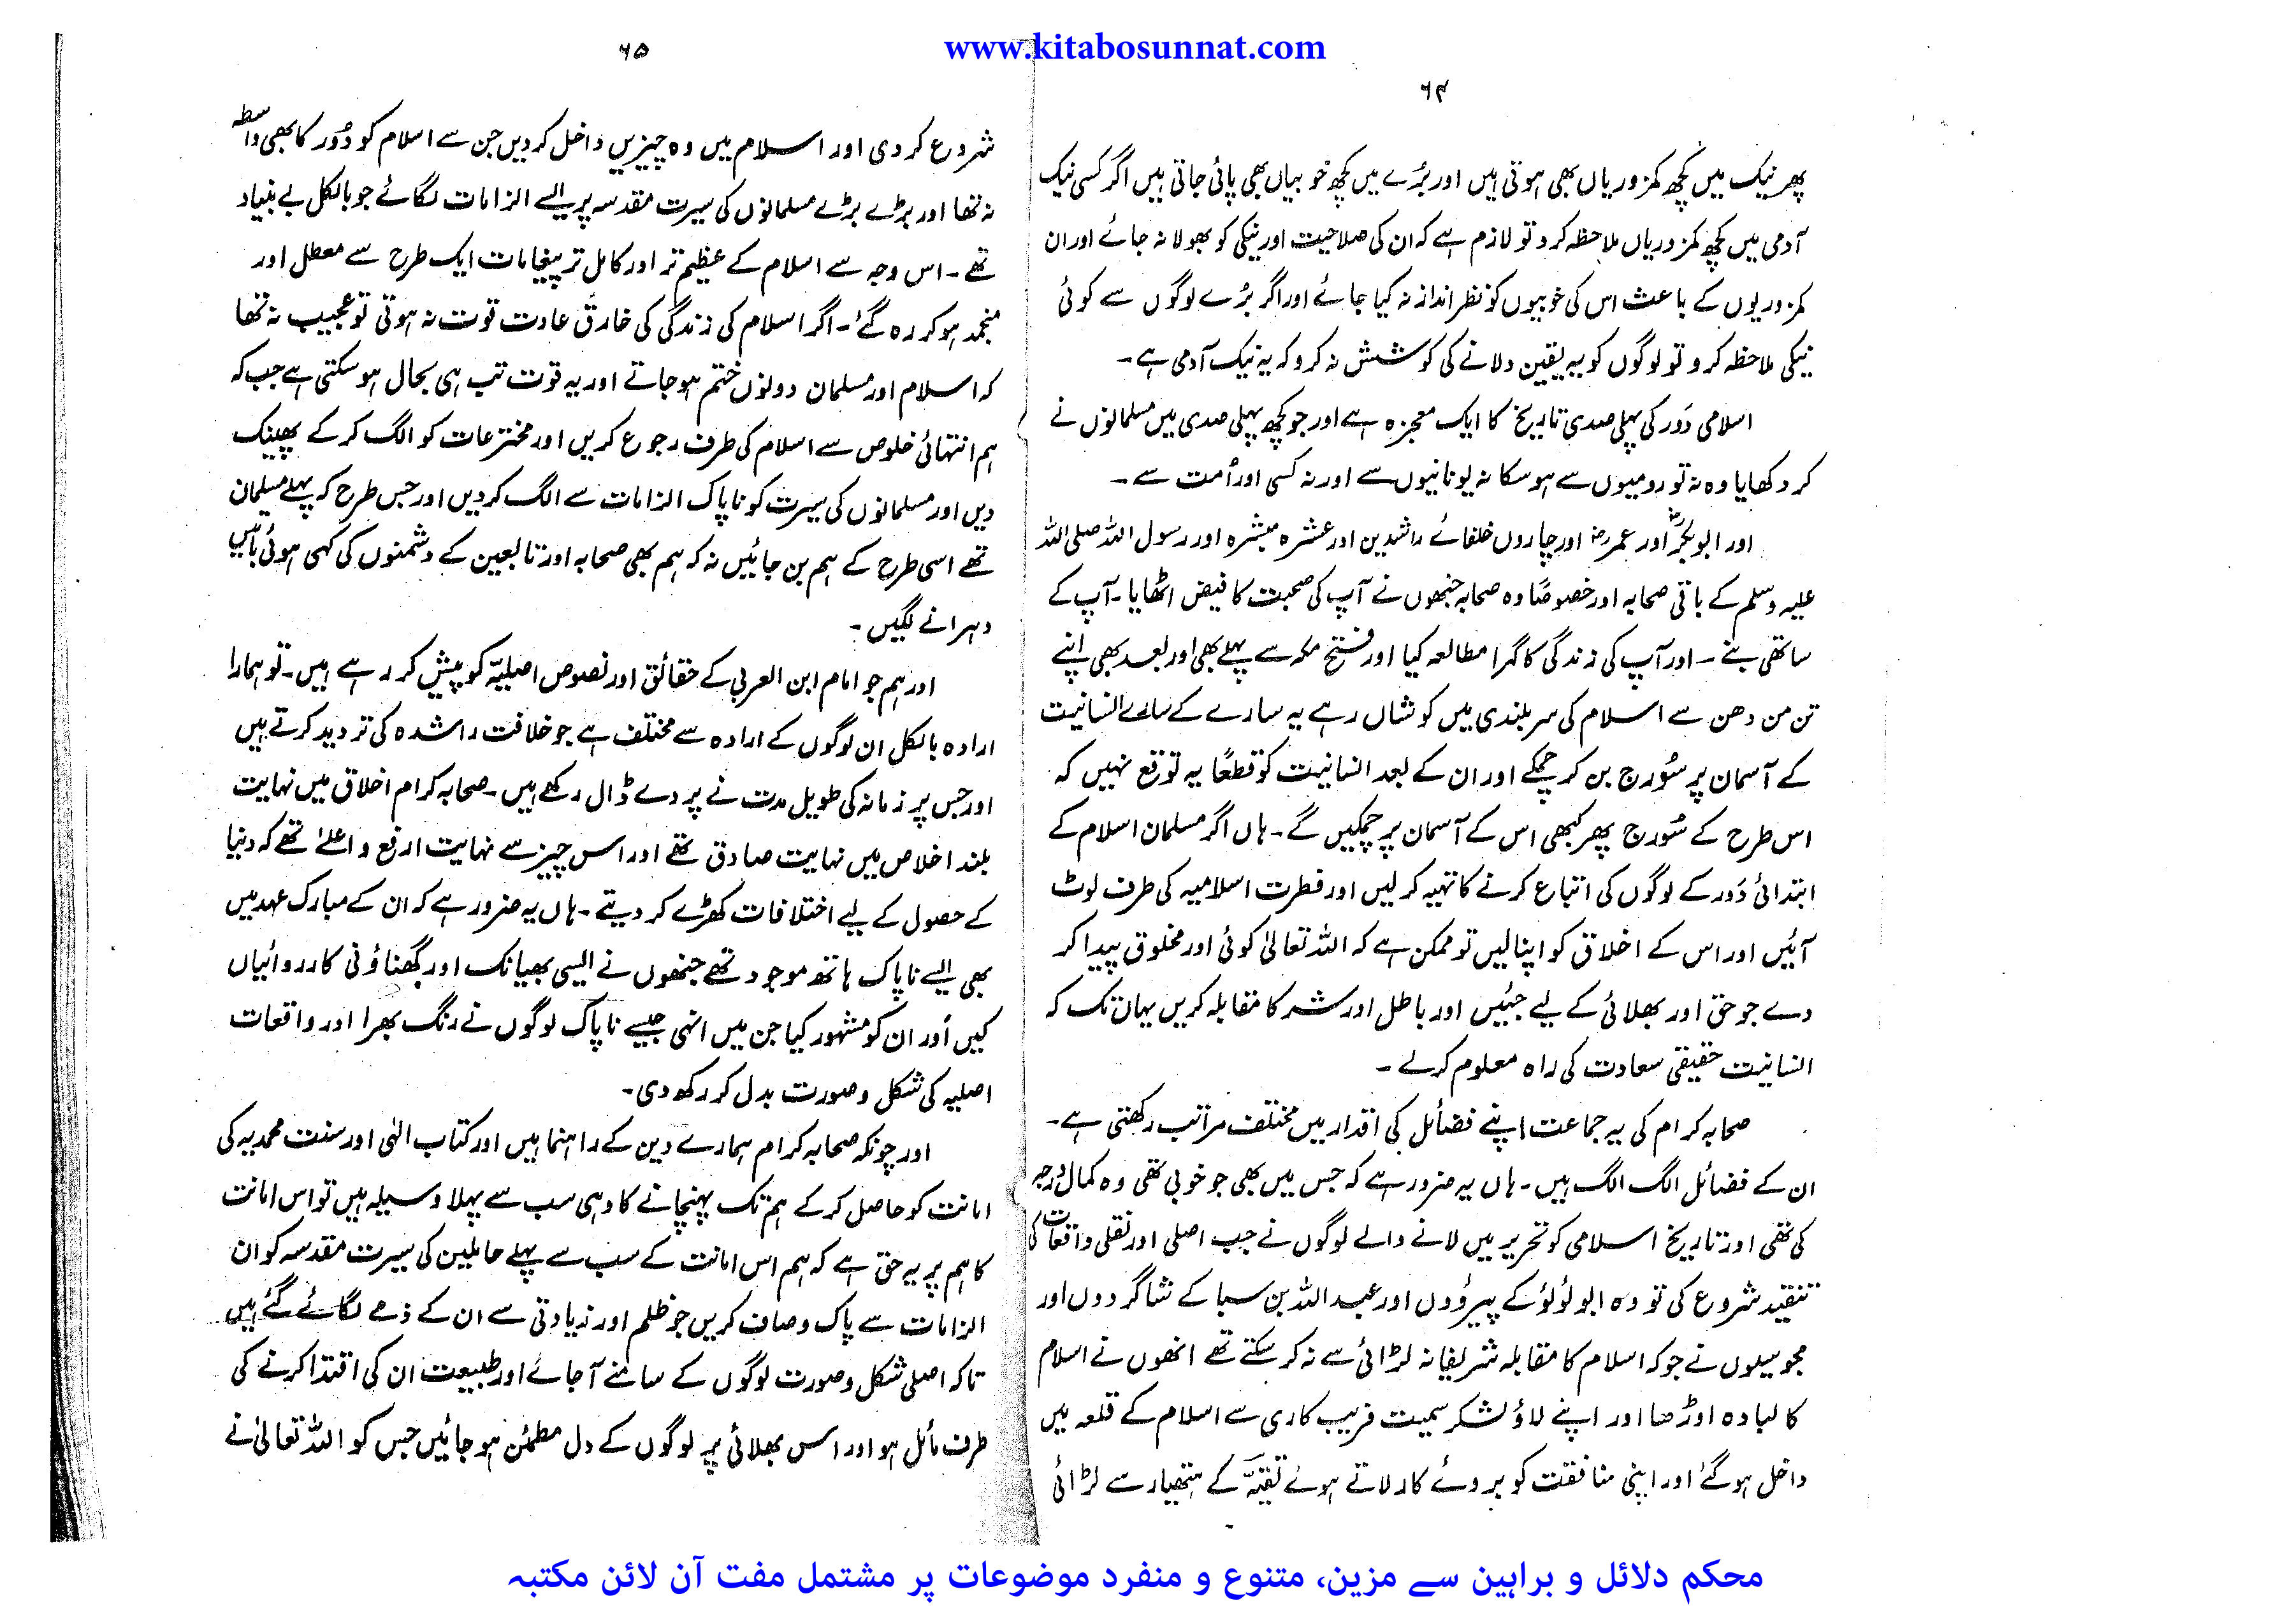 www.kitabosunnat.com
۶۴
پھر نیک میں کچھ کمزوریاں بھی ہوتی ہیں اور بُرے میں کچھ خوبیاں بھی پائی جاتی ہیں اگر کسی نیک
آدمی میں کچھ کمزوریاں ملاحظہ کرو تو لازم ہے کہ ان کی صلاحیت اور نیکی کو بھولا نہ جائے اور ان
کمزوریوں کے باعث اس کی خوبیوں کو نظر انداز نہ کیا جائے اور اگر بُرے لوگوں سے کوئی
نیکی ملاحظہ کرو تو لوگوں کو یہ یقین دلانے کی کوشش نہ کرو کہ یہ نیک آدمی ہے۔
اسلامی دَور کی پہلی صدی تاریخ کا ایک معجزہ ہے اور جو کچھ پہلی صدی میں مسلمانوں نے
کر دکھایا وہ نہ تو رومیوں سے ہو سکا نہ یونانیوں سے اور نہ کسی اور اُمت سے۔
اور ابوبکرؓ اور عمرؓ اور چاروں خلفائے راشدین اور عشرہ مبشرہ اور رسول اللہ صلی اللہ
علیہ وسلم کے باقی صحابہ اور خصوصًا وہ صحابہ جنھوں نے آپ کی صحبت کا فیض اٹھایا۔ آپ کے
ساتھی بنے۔ اور آپ کی زندگی کا گہرا مطالعہ کیا اور فتح مکہ سے پہلے بھی اور بعد بھی اپنے
تن من دھن سے اسلام کی سربلندی میں کوشاں رہے یہ سارے کے سارے انسانیت
کے آسمان پر سُورج بن کر چمکے اور ان کے بعد انسانیت کو قطعًا یہ توقع نہیں کہ
اس طرح کے سُورج پھر کبھی اس کے آسمان پر چمکیں گے۔ ہاں اگر مسلمان اسلام کے
ابتدائی دَور کے لوگوں کی اتباع کرنے کا تہیہ کر لیں اور فطرت اسلامیہ کی طرف لوٹ
آئیں اور اس کے اخلاق کو اپنا لیں تو ممکن ہے کہ اللہ تعالیٰ کوئی اور مخلوق پیدا کر
دے جو حق اور بھلائی کے لیے جئیں اور باطل اور شر کا مقابلہ کریں یہاں تک کہ
انسانیت حقیقی سعادت کی راہ معلوم کر لے۔
صحابہ کرام کی یہ جماعت اپنے فضائل کی اقدار میں مختلف مراتب رکھتی ہے۔
ان کے فضائل الگ الگ ہیں۔ ہاں یہ ضرور ہے کہ جس میں بھی جو خوبی تھی وہ کمال درجہ
کی تھی اور تاریخ اسلامی کو تحریر میں لانے والے لوگوں نے جب اصلی اور نقلی واقعات کی
تنقید شروع کی تو وہ ابو لُؤلُؤ کے پیرؤوں اور عبد اللہ بن سبا کے شاگردوں اور
مجوسیوں نے جو کہ اسلام کا مقابلہ شریفانہ لڑائی سے نہ کر سکتے تھے انھوں نے اسلام
کا لبادہ اوڑھا اور اپنے لاؤ لشکر سمیت فریب کاری سے اسلام کے قلعہ میں
داخل ہو گئے اور اپنی منافقت کو بروئے کار لاتے ہوئے تقیّہ کے ہتھیار سے لڑائی
۶۵
شروع کر دی اور اسلام میں وہ چیزیں داخل کر دیں جن سے اسلام کو دُور کا بھی واسطہ
نہ تھا اور بڑے بڑے مسلمانوں کی سیرت مقدسہ پر ایسے الزامات لگائے جو بالکل بے بنیاد
تھے۔ اس وجہ سے اسلام کے عظیم تر اور کامل تر پیغامات ایک طرح سے معطل اور
منجمد ہو کر رہ گئے۔ اگر اسلام کی زندگی کی خارقِ عادت قوت نہ ہوتی تو عجیب نہ تھا
کہ اسلام اور مسلمان دونوں ختم ہو جاتے اور یہ قوت تب ہی بحال ہو سکتی ہے جب کہ
ہم انتہائی خلوص سے اسلام کی طرف رجوع کریں اور مخترعات کو الگ کر کے پھینک
دیں اور مسلمانوں کی سیرت کو ناپاک الزامات سے الگ کر دیں اور جس طرح کہ پہلے مسلمان
تھے اسی طرح کے ہم بن جائیں نہ کہ ہم بھی صحابہ اور تابعین کے دشمنوں کی کہی ہوئی باتیں
دہرانے لگیں۔
اور ہم جو امام ابن العربی کے حقائق اور نصوص اصلیّہ کو پیش کر رہے ہیں۔ تو ہمارا
ارادہ بالکل ان لوگوں کے ارادہ سے مختلف ہے جو خلافت راشدہ کی تردید کرتے ہیں
اور جس پر زمانہ کی طویل مدت نے پردے ڈال رکھے ہیں۔ صحابہ کرام اخلاق میں نہایت
بلند اخلاص میں نہایت صادق تھے اور اس چیز سے نہایت ارفع و اعلےٰ تھے کہ دنیا
کے حصول کے لیے اختلافات کھڑے کر دیتے۔ ہاں یہ ضرور ہے کہ ان کے مبارک عہد میں
بھی ایسے ناپاک ہاتھ موجود تھے جنھوں نے ایسی بھیانک اور گھناؤنی کارروائیاں
کیں اور ان کو مشہور کیا جن میں انہی جیسے ناپاک لوگوں نے رنگ بھرا اور واقعات
اصلیہ کی شکل و صورت بدل کر رکھ دی۔
اور چونکہ صحابہ کرام ہمارے دین کے راہنما ہیں اور کتاب الٰہی اور سنت محمدیہ کی
امانت کو حاصل کر کے ہم تک پہنچانے کا وہی سب سے پہلا وسیلہ ہیں تو اس امانت
کا ہم پر یہ حق ہے کہ ہم اس امانت کے سب سے پہلے حاملین کی سیرت مقدسہ کو ان
الزامات سے پاک و صاف کریں جو ظلم اور زیادتی سے ان کے ذمے لگائے گئے ہیں
تاکہ اصلی شکل و صورت لوگوں کے سامنے آ جائے اور طبیعت ان کی اقتدا کرنے کی
طرف مائل ہو اور اس بھلائی پر لوگوں کے دل مطمئن ہو جائیں جس کو اللہ تعالیٰ نے
محکم دلائل و براہین سے مزین، متنوع و منفرد موضوعات پر مشتمل مفت آن لائن مکتبہ